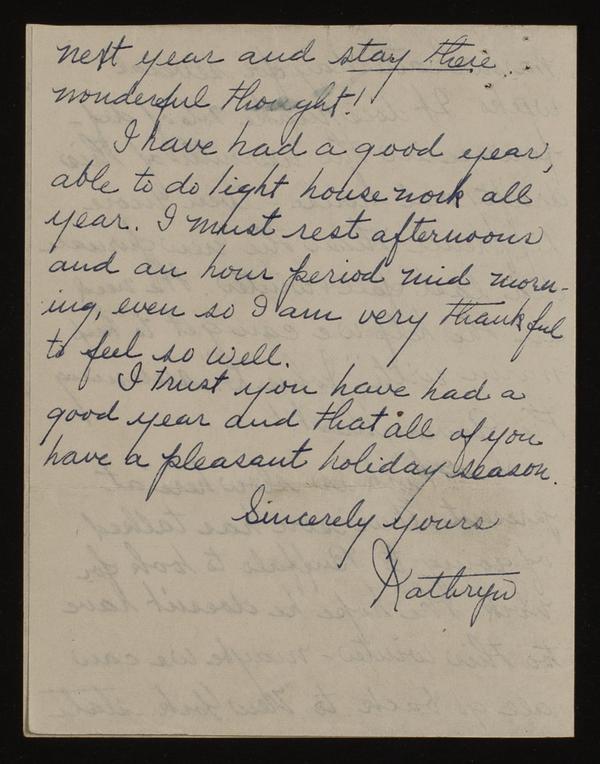 next year and stay there
wonderful thought!
I have had a good year,
able to do light housework all
year. I must rest afternoons
and an hour period mid morn-
ing, even so I am very thankful
to feel so well.
I trust you have had a
good year and that all of you
have a pleasant holiday season.
Sincerely yours
Kathryn